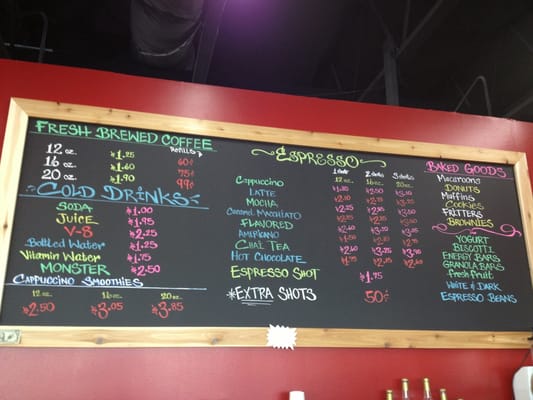 FRESH BREWED COFFEE
Refills
12 oz. $1.25 60¢
16 oz. $1.60 75¢
20 oz. $1.90 99¢
COLD DRINKS
SODA $1.00
JUICE $1.95
V-8 $2.25
Bottled Water $1.25
Vitamin Water $1.75
MONSTER $2.50
CAPPUCCINO SMOOTHIES
12 oz. 16 oz. 20 oz.
$2.50 $3.05 $3.85
ESPRESSO
1 shot 2 shots 3 shots
12 oz. 16 oz. 20 oz.
Cappuccino
LATTE
MOCHA
Caramel Macchiato
FLAVORED
AMERICANO
CHAI TEA
HOT CHOCOLATE
ESPRESSO SHOT $1.75
*EXTRA SHOTS 50¢
BAKED GOODS
Macaroons
DONUTS
Muffins
Cookies
FRITTERS
BROWNIES
YOGURT
BISCOTTI
ENERGY BARS
GRANOLA BARS
fresh fruit
WHITE & DARK
ESPRESSO BEANS